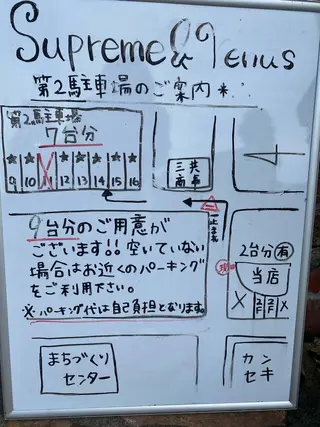 Supreme & Venus
第2駐車場のご案内*∴
第2駐車場
7台分
9 10 12 13 14 15 16
三共
商事
止まれ
9台分のご用意が
ございます!!空いていない
場合はお近くのパーキング
をご利用下さい。
※パーキング代は自己負担となります。
2台分有
当店
X X
まちづくり
センター
カン
セキ